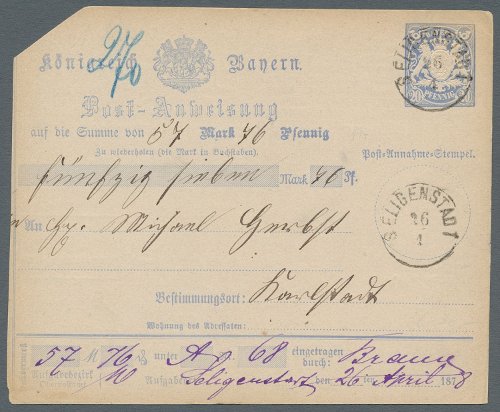 Königreich Bayern.
2/70
SELIGENSTADT
26
4
PFENNIG
Post-Anweisung
auf die Summe von 57 Mark 76 Pfennig
Zu wiederholen (die Mark in Buchstaben).
Post-Annahme-Stempel.
fünfzig sieben Mark 76 Pf.
An Hr. Michael Herbst
SELIGENSTADT
26
4
Bestimmungsort: Karlstadt
Wohnung des Adressaten:
57 M 76 unter A 68 eingetragen durch: Braun
Aufgabe Seligenstadt den 26 April 1878